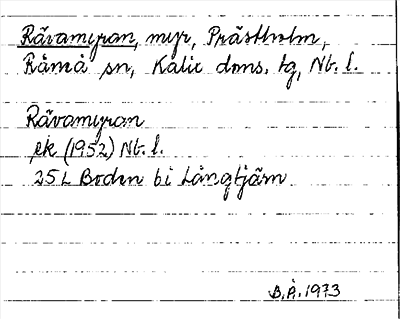 Rävamyran, myr, Prästholm,
Råneå sn, Kalix doms. tg, Nb. l.
Rävamyran
ek (1952) Nb. l.
25L Boden bi Långtjärn
B.Å. 1973